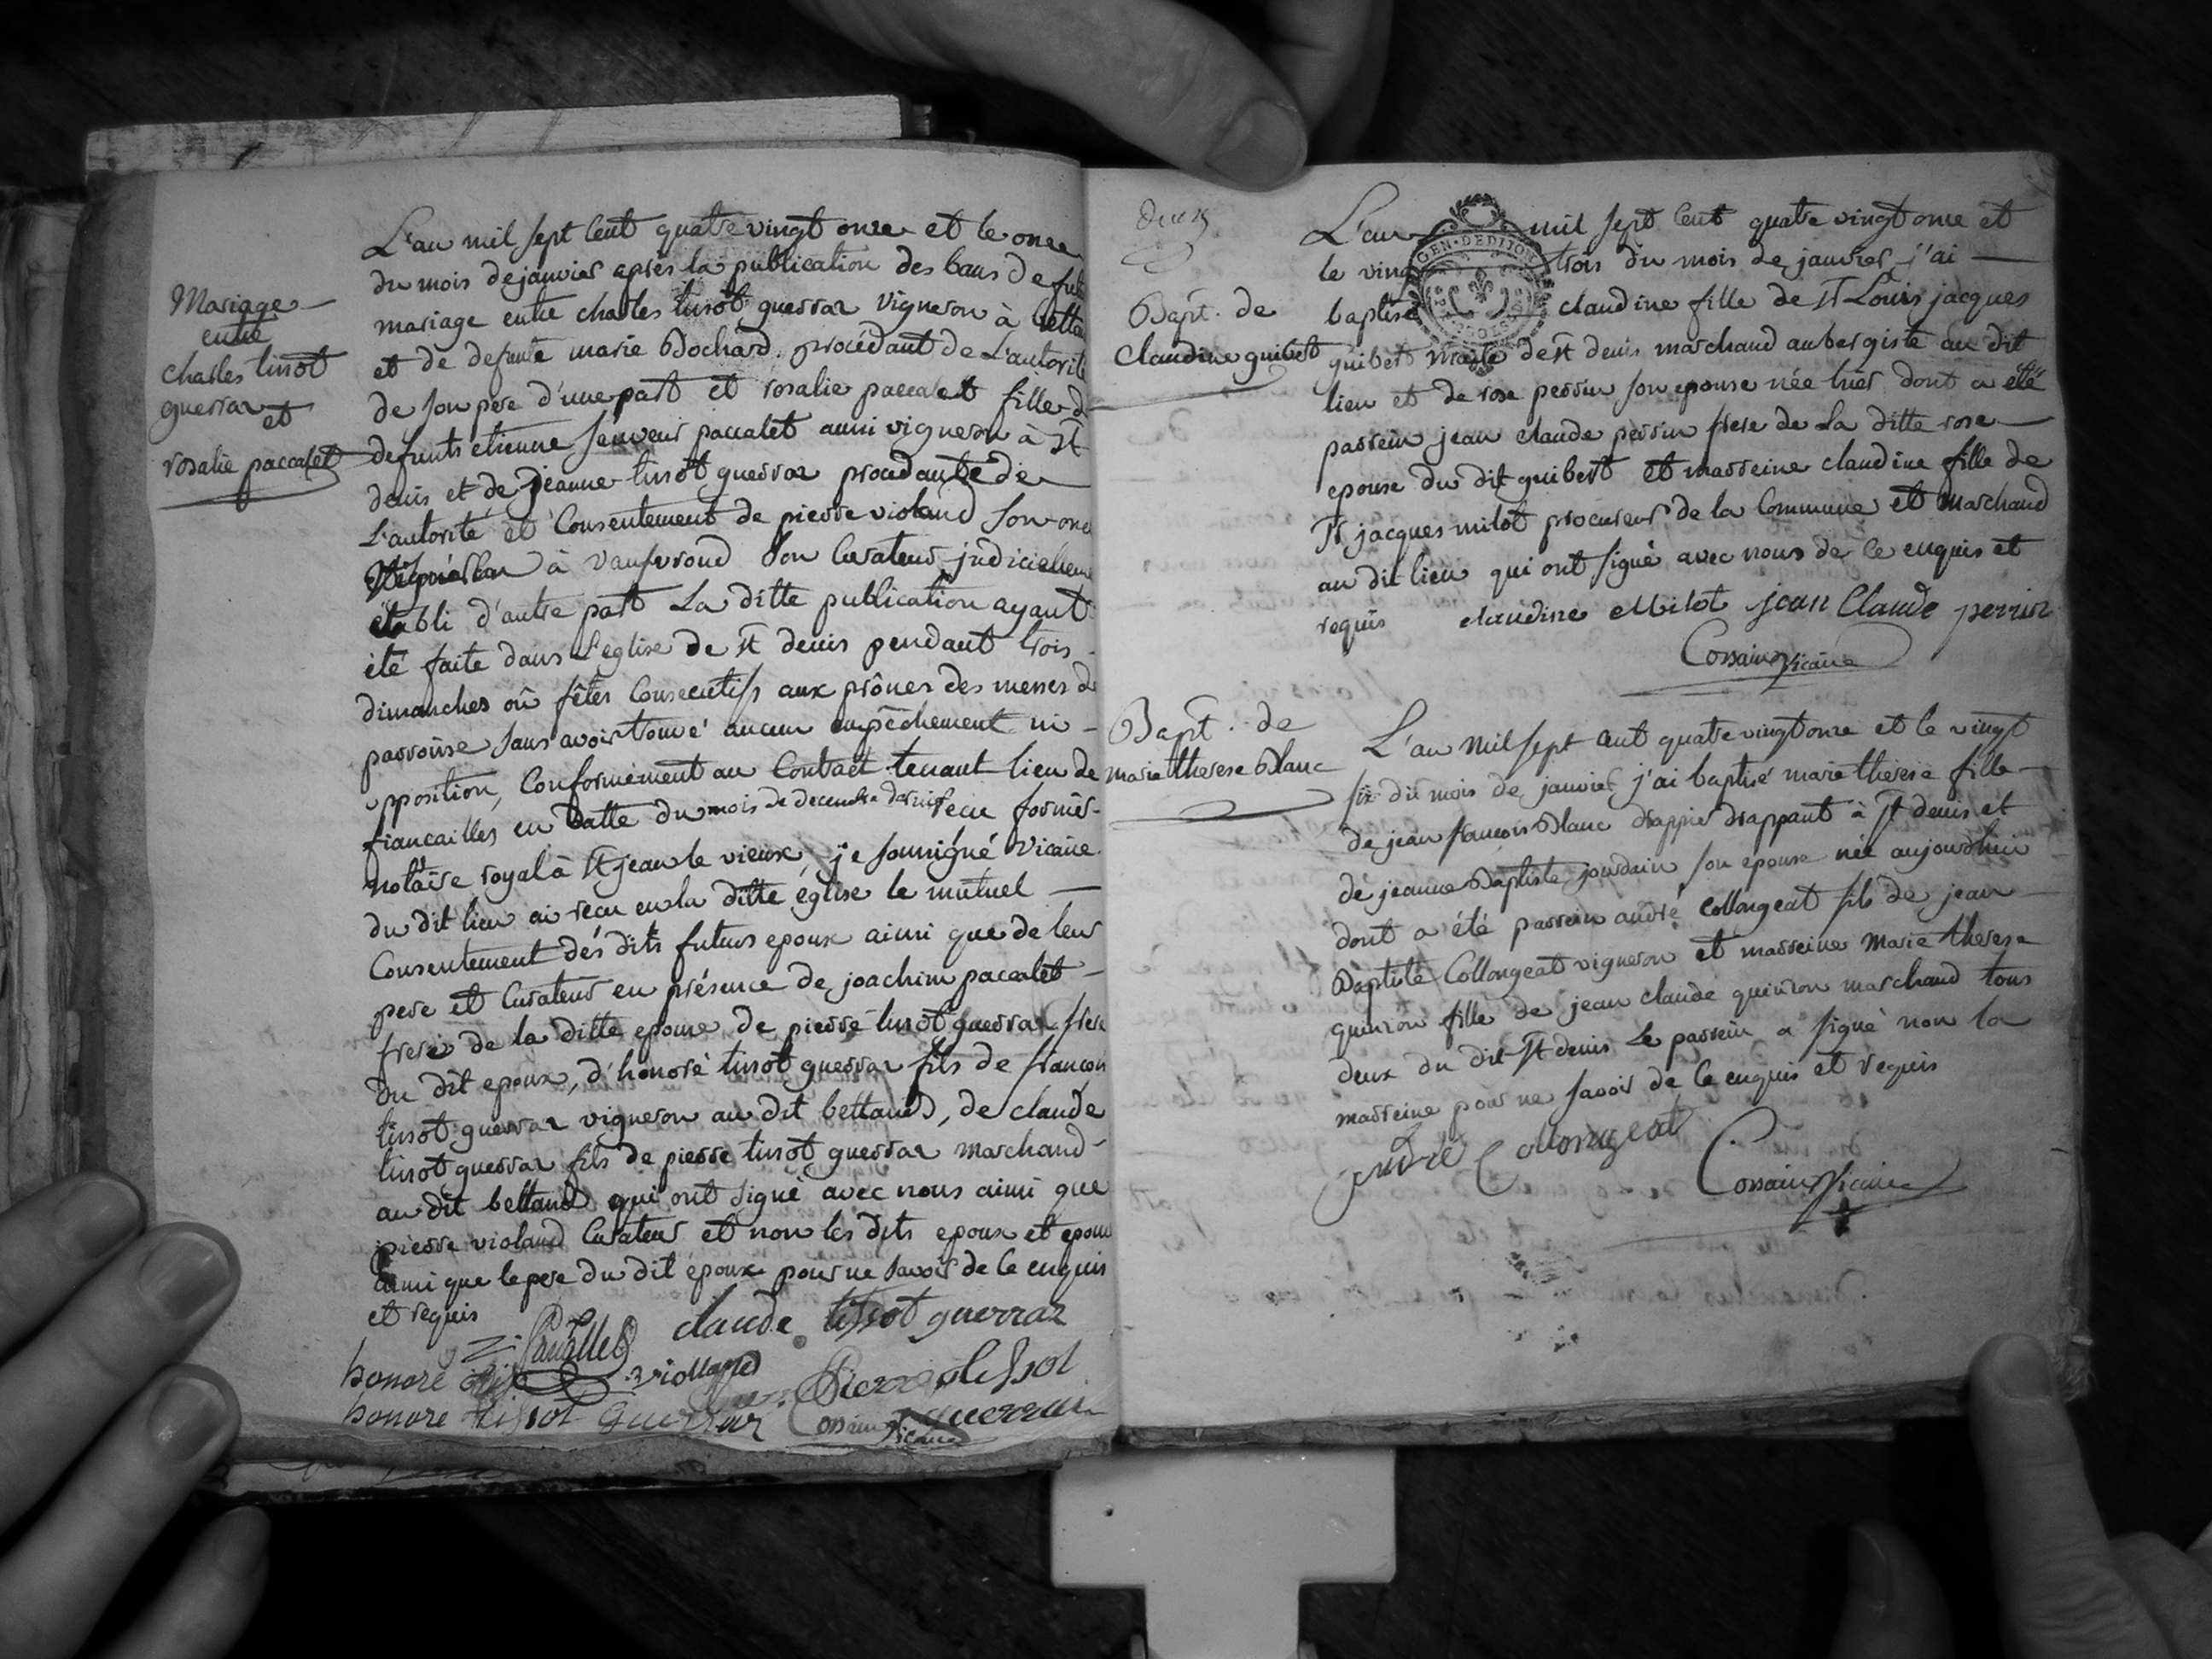 Mariage
entre
charles tissot
guerraz
et
rosalie paccalet
L'an mil sept cent quatre vingt onze et le onze
du mois de janvier après la publication des bans de futur
mariage entre charles tissot guerraz vigneron à betta
et de defunte marie Bochard procédant de L'autorité
de son père d'une part et rosalie paccalet fille de
defunts etienne sauveur paccalet aussi vigneron à st
denis et de jeanne tissot guerraz procedante de
L'autorité et Consentement de pierre violand son
à vauxrond son Curateur judiciellement
établi d'autre part La ditte publication ayant
été faite dans L'eglise de st denis pendant trois
dimanches où fêtes Consecutifs aux prônes des messes de
parroisse sans avoir trouvé aucun empêchement ni
opposition, Conformément au Contract tenant lieu de
fiancailles en Datte du mois de decembre dernier recu
notaire royal à st jean le vieux, je soussigné vicaire
du dit lieu ai recu en la ditte église le mutuel
Consentement des dits futurs epoux ainsi que de leur
pere et Curateur en présence de joachim paccalet
frere de la ditte epouse, de pierre tissot guerraz frere
du dit epoux, d'honoré tissot guerraz fils de francois
tissot guerraz vigneron au dit bettand, de claude
tissot guerraz fils de pierre tissot guerraz marchand
au dit bettand qui ont signé avec nous ainsi que
pierre violand Curateur et non les dits epoux et epouse
ainsi que le pere du dit époux pour ne savoir de ce enquis
et requis
claude tissot guerraz
j. Pacallet
honoré
violland
Pierre tissot
honore tissot Guerraz
guerraz
Cossain vicaire
deux
Bapt. de
Claudine guibert
L'an mil sept cent quatre vingt onze et
le vingt trois du mois de janvier j'ai
GEN·DEDIJON
baptisé claudine fille de sr Louis jacques
guibert maire de st denis marchand aubergiste au dit
lieu et de rose perrin son epouse née hier dont a été
parrein jean claude perrin frere de La ditte rose
epouse du dit guibert et marreine claudine fille de
sr jacques milot procureur de la Commune et marchand
au dit lieu qui ont signé avec nous de ce enquis et
requis claudine Milot jean Claude perrin
Cossain vicaire
Bapt. de
marie therese Blanc
L'an mil sept cent quatre vingt onze et le vingt
six du mois de janvier j'ai baptisé marie therese fille
de jean francois Blanc drappier drappant à st denis et
de jeanne Baptiste jourdain son epouse née aujourdhui
dont a été parrein andré Collongeat fils de jean
Baptiste Collongeat vigneron et marreine Marie therese
quinson fille de jean claude quinson marchand tous
deux du dit st denis Le parrein a signé non la
marreine pour ne savoir de ce enquis et requis
André Collongeat
Cossain vicaire